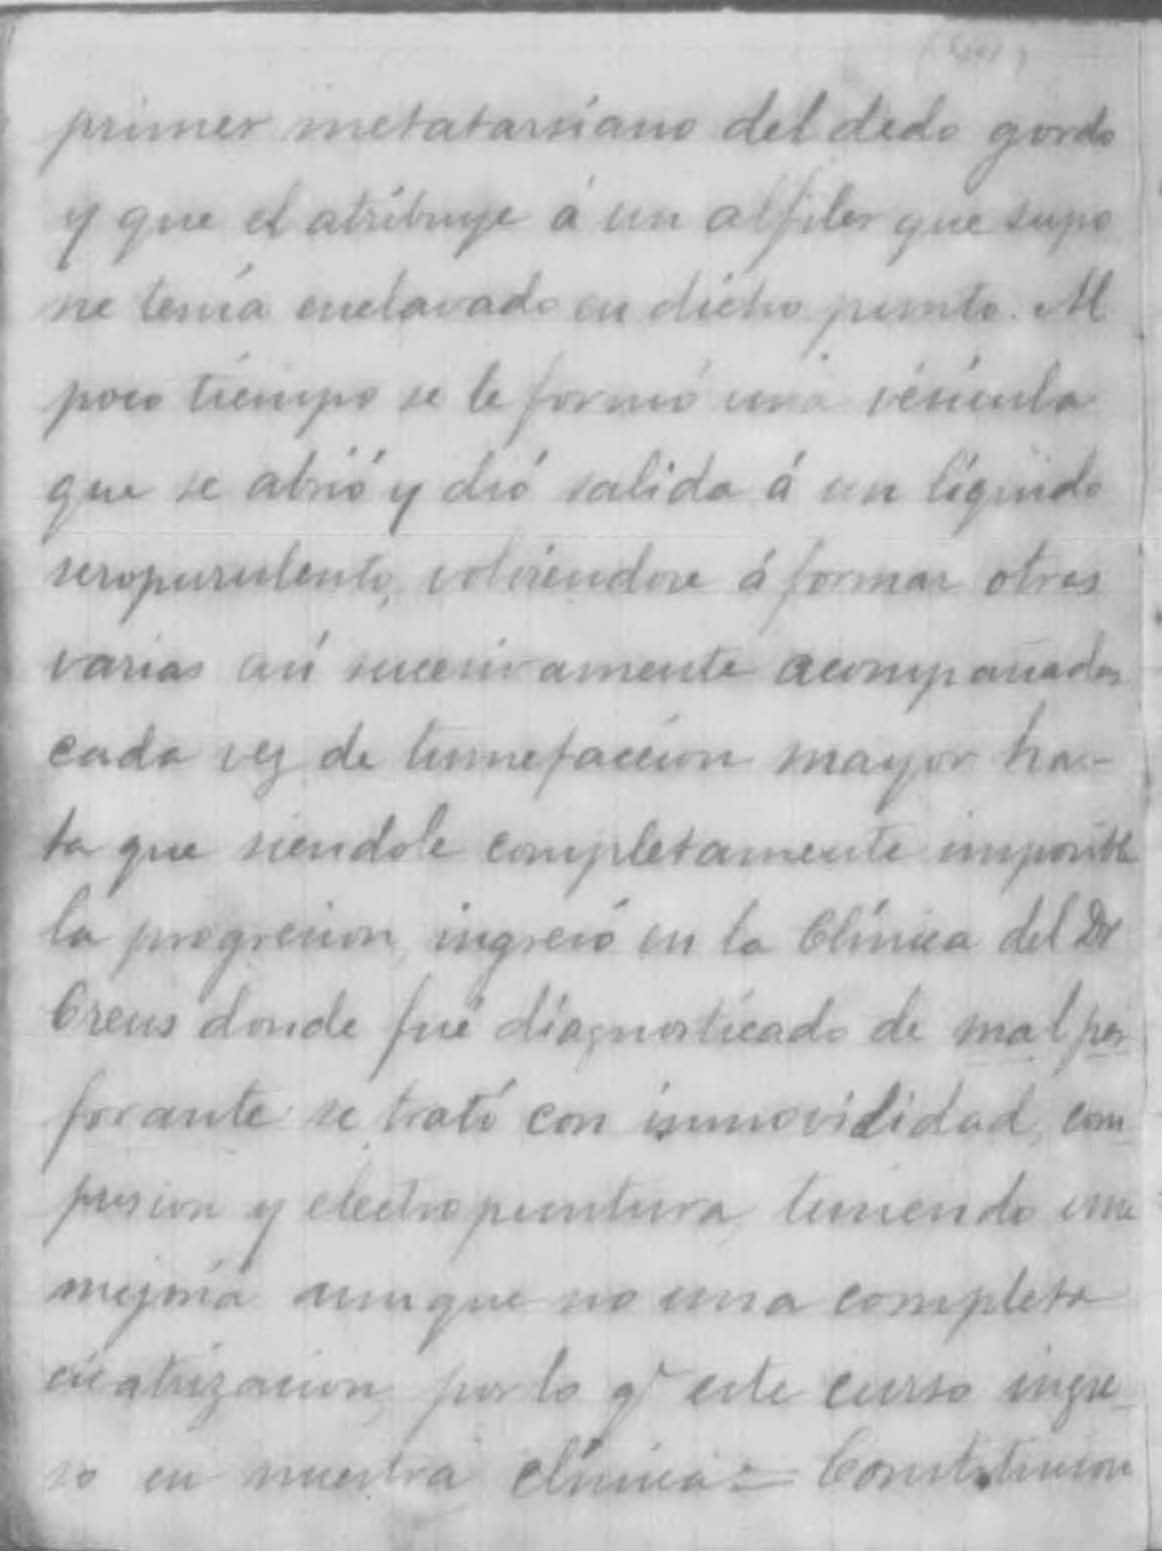 primer metatarsiano del dedo gordo
y que el atribuye á un alfiler que supo
ne tenia enclavado en dicho punto. Al
poco tiempo se le formó una vésicula
que se abrió y dió salida á un líquido
seropurulento, volviendose á formar otras
varias así sucesivamente acompañadas
cada vez de tumefaccion mayor has-
ta que siendole completamente imposible
la progresion, ingresó en la Clínica del Dr
Creus donde fué diagnosticado de mal per
forante se trató con inmovilidad, com
presion y electropuntura, teniendo una
mejoría aunque no una completa
cicatrizacion, por lo q.e este curso ingre
so en nuestra clínica = Constitucion